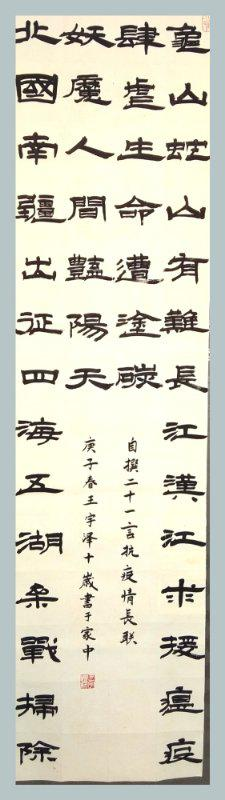 龜山蛇山有難長江漢江求援瘟疫
肆虐生命遭塗碳
自撰二十一言抗疫情長联
北國南疆出征四海五湖参戰掃除
妖魔人間豔陽天
庚子春王宇泽十歲書于家中